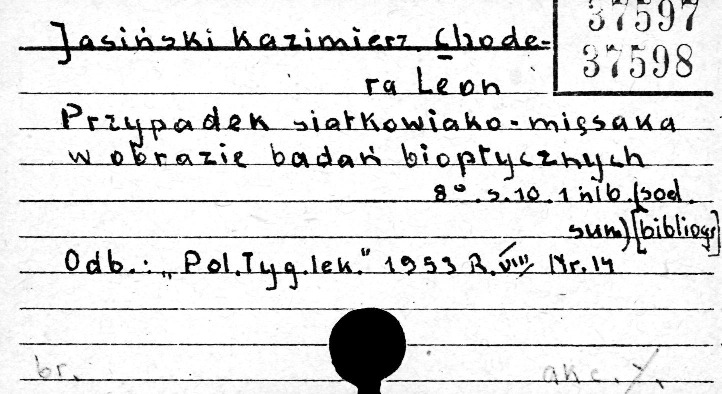 37597
37598
Jasiński Kazimierz, Chode-
ra Leon
Przypadek siatkowiako-mięsaka
w obrazie badań bioptycznych
8°. s. 10. 1 nlb. (sod.
sum) [bibliogr]
Odb.: „Pol.Tyg.lek." 1953 R. VIII Nr. 14
br.
akc.